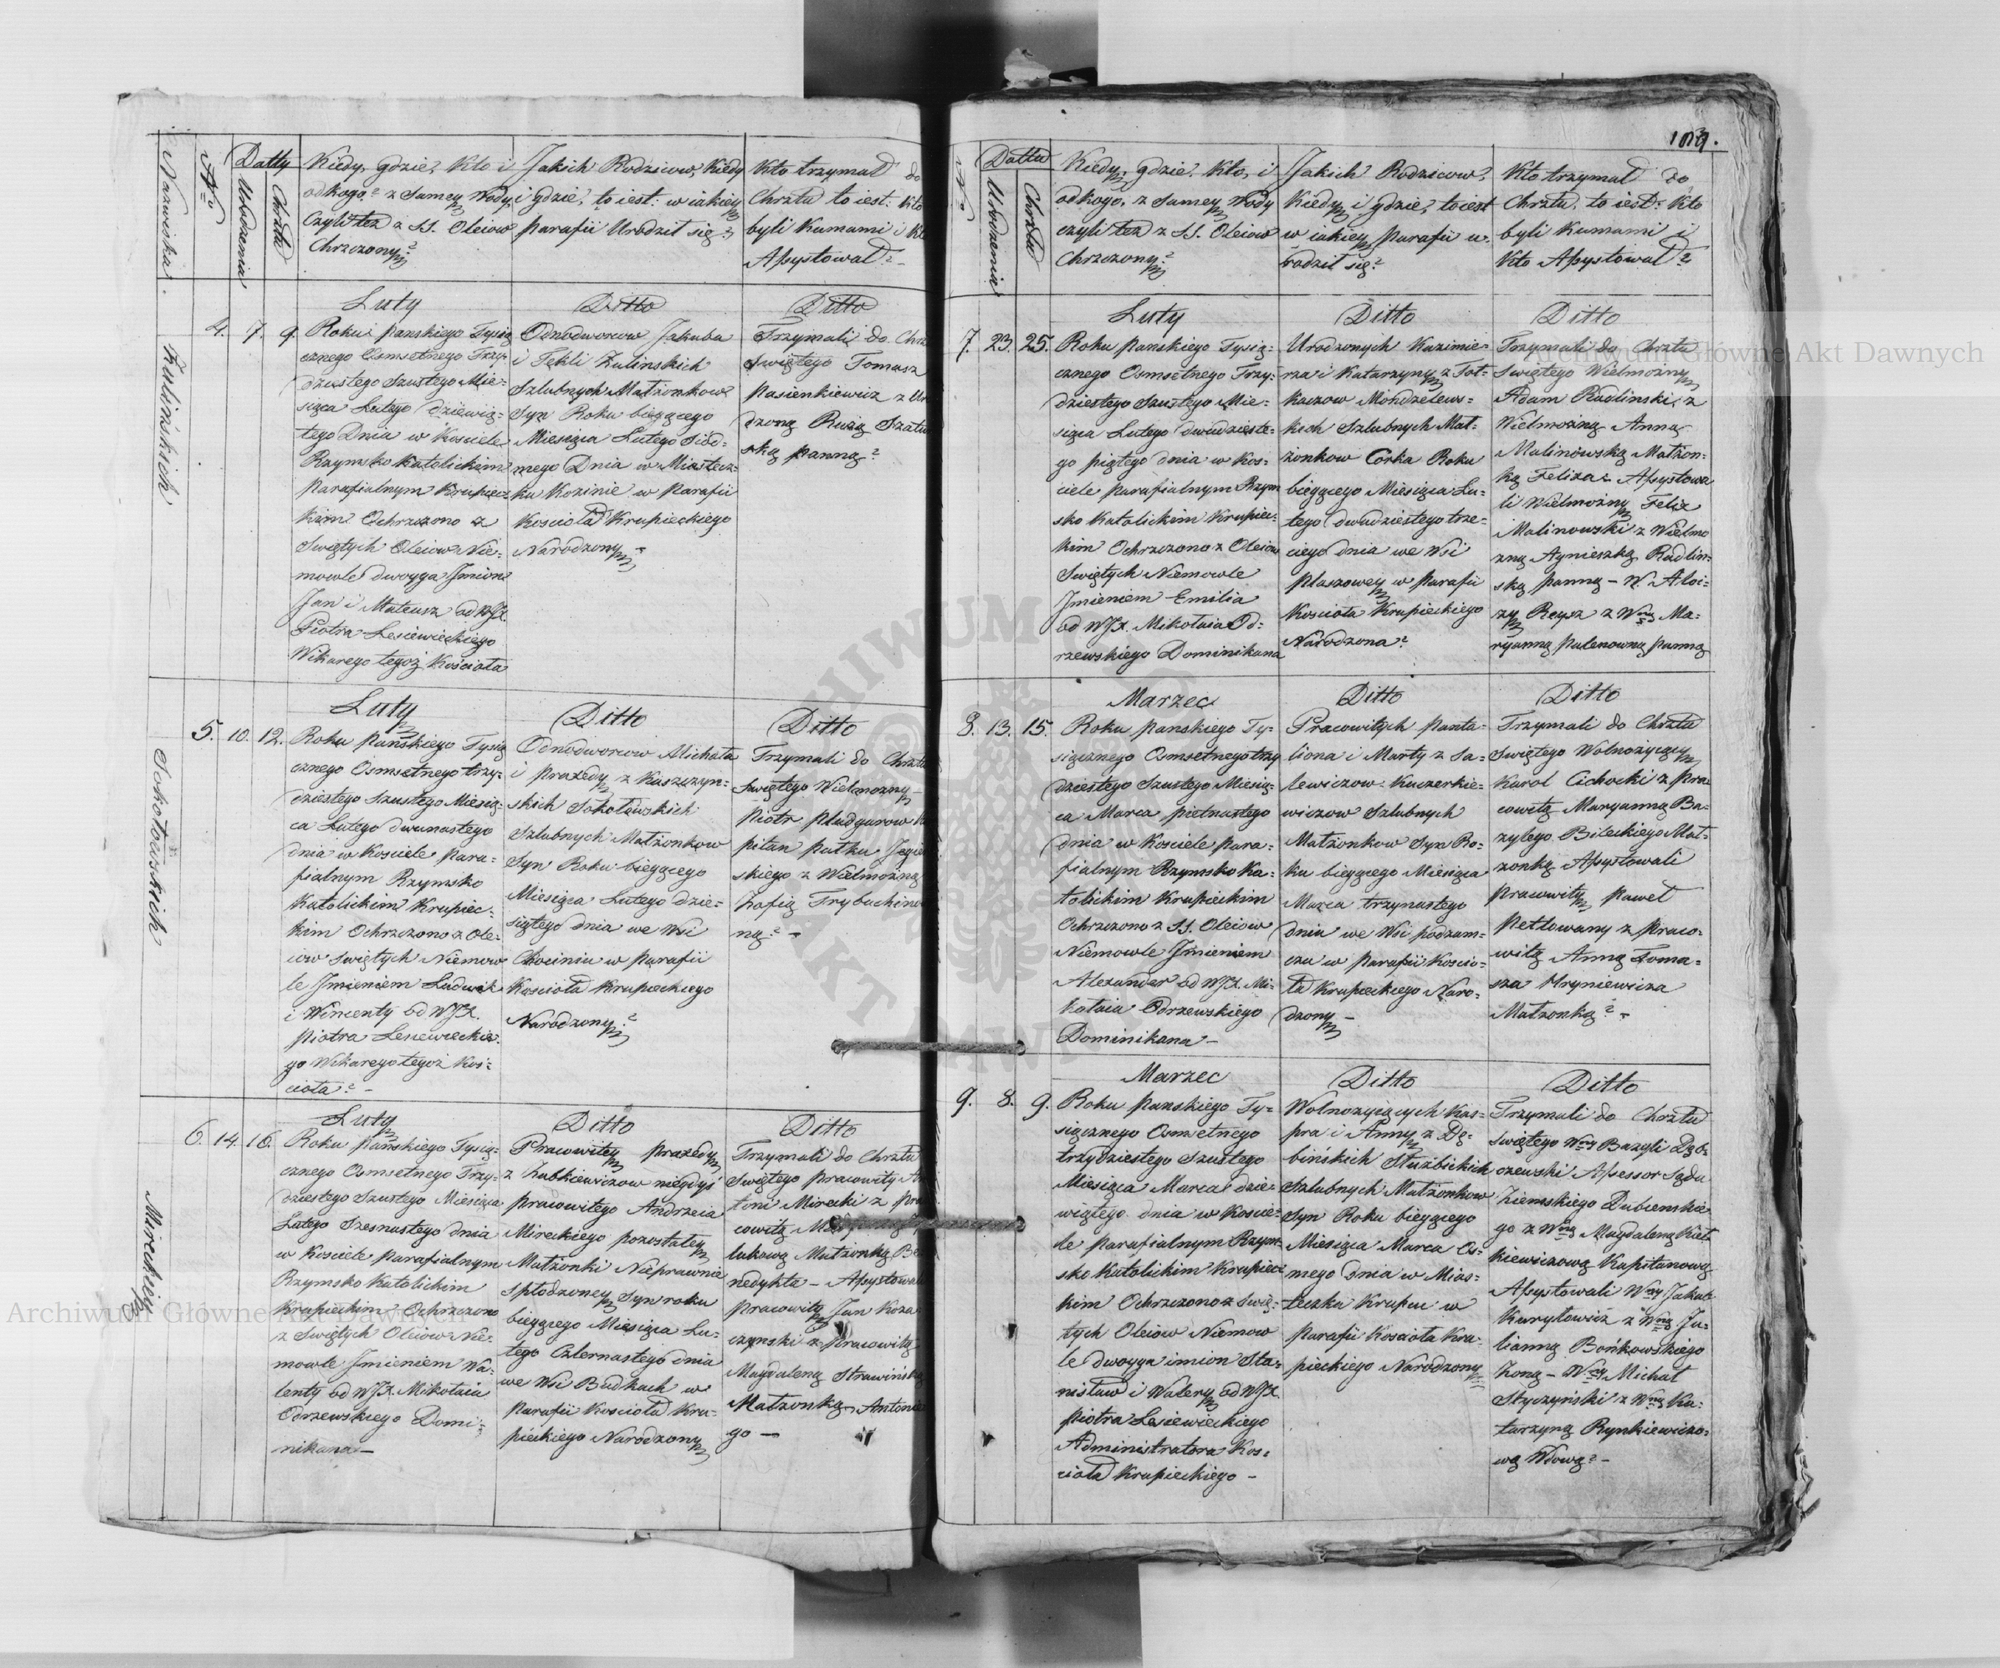 Nazwiska.
Nro
Datty
Urodzenia
Chrztu
Kiedy, gdzie, Kto i
odkogo? z Samey Wody,
Czyli tez z SS. Oleiow
Chrzczony?
Jakich Rodzicow, Kiedy
i gdzie, to iest: w iakiey
Parafii Urodził się?
Kto trzymał do
Chrztu to iest: Kto
byli Kumami i Kto
Assystował? -
Zulińskich
4. 7. 9.
Luty
Roku Pańskiego Tysią
cznego Osmsetnego Trzy-
dziestego Szustego Mie-
siąca Lutego dziewią-
tego Dnia w Kosciele
Rzymsko Katolickim
Parafialnym Krupiec
kim Ochrzczono z
Swiętych Oleiow Nie-
mowle dwoyga Jmion
Jan i Mateusz od WJX.
Piotra Lesiewieckiego
Wikarego tegoż Koscioła
Ditto
Odnodworcow Jakuba
i Tekli Zulinskich
Szlubnych Małżonkow
Syn Roku bieżącego
Miesiąca Lutego Siód-
mego Dnia w Miastecz-
ku Kozinie w Parafii
Koscioła Krupieckiego
Narodzony -
Ditto
Trzymali do Chrz
Swiętego Tomasz
Pasienkiewicz z Uro
dzoną Rużą Szatu
ską Panną?
Sokołowskich
5. 10. 12.
Luty
Roku Pańskiego Tysią
cznego Osmsetnego trzy-
dziestego Szustego Miesią-
ca Lutego dwunastego
dnia w Kosciele Para-
fialnym Rzymsko
Katolickim Krupiec-
kim Ochrzczono z Ole-
iow Swiętych Niemow
le Jmieniem Ludwik
i Wincenty od WJX.
Piotra Lesiewieckie-
go Wikarego tegoż Kos-
cioła? -
Ditto
Odnodworcow Michała
i Praxedy z Kaszczyń-
skich Sokołowskich
Szlubnych Małżonkow
Syn Roku bieżącego
Miesiąca Lutego dzie-
siątego dnia we Wsi
w Parafii
Koscioła Krupieckiego
Narodzony?
Ditto
Trzymali do Chrztu
Swiętego Wielmożny
Piotr Pludgurow Ka
pitan Pułku
skiego z Wielmożną
Zofią Trybuchino
ną? -
Mireckiey
6. 14. 16.
Luty
Roku Pańskiego Tysią-
cznego Osmsetnego Trzy-
dziestego Szustego Miesiąca
Lutego Szesnastego dnia
w Kosciele Parafialnym
Rzymsko Katolickim
Krupieckim Ochrzczono
z Swiętych Oleiow Nie-
mowle Jmieniem Wa-
lenty od WJX. Mikołaia
Odrzewskiego Domi-
nikana -
Ditto
Pracowitey Praxedy
z Zubkiewiczow niegdyś
Pracowitego Andrzeia
Mireckiego pozostałey
Małżonki Nieprawnie
spłodzoney Syn roku
bieżącego Miesiąca Lu-
tego Czternastego dnia
we Wsi Budkach w
Parafii Koscioła Kru-
pieckiego Narodzony
Ditto
Trzymali do Chrztu
Swiętego Pracowity An
toni Mirecki z Pra
cowitą
lukową Małżonką Be
nedykta - Assystowali
Pracowity Jan Koza
czynski z Pracowitą
Magdaleną Strawińsk
Małżonką Antonie
go -
109.
Nro
Datta
Urodzenia
Chrztu
Kiedy, gdzie, Kto, i
odkogo, z Samey Wody
czyli tez z SS. Oleiow
Chrzczony?
Jakich Rodzicow,
Kiedy i gdzie, to iest
w iakiey Parafii u-
rodził się?
Kto trzymał do
Chrztu, to iest: Kto
byli Kumami i
Kto Assystował?
7. 23. 25.
Luty
Roku Pańskiego Tysią-
cznego Osmsetnego Trzy-
dziestego Szustego Mie-
siąca Lutego dwudzieste-
go piątego dnia w Kos-
ciele Parafialnym Rzym
sko Katolickim Krupiec-
kim Ochrzczono z Oleiow
Swiętych Niemowle
Jmieniem Emilia
od WJX. Mikołaia Od-
rzewskiego Dominikana
Ditto
Urodzonych Kazimie-
rza i Katarzyny z Toł-
kaczow Mondzelews-
kich Szlubnych Mał-
żonkow Corka Roku
bieżącego Miesiąca Lu-
tego dwudziestego trze-
ciego dnia we Wsi
Płaszowey w Parafii
Koscioła Krupieckiego
Narodzona?
Ditto
Trzymali do Chrztu
Swiętego Wielmożny
Adam Radlinski z
Wielmożną Anną
Malinowską Małżon-
ką Felixa - Assystowa
li Wielmożny Felix
Malinowski z Wielmo
żną Agnieszką Radlin-
ską Panną - W. Aloi-
zy Reysz z Wną Ma-
ryanną Palenowną Panną
8. 13. 15.
Marzec
Roku Pańskiego Ty-
siącznego Osmsetnego trzy
dziestego Szustego Miesią-
ca Marca pietnastego
dnia w Kosciele Para-
fialnym Rzymsko Ka-
tolickim Krupieckim
Ochrzczono z SS. Oleiow
Niemowle Jmieniem
Alexander od WJX. Mi-
kołaia Odrzewskiego
Dominikana -
Ditto
Pracowitych Panta-
liona i Marty z Sa-
lewiczow Kuczerkie-
wiczow Szlubnych
Małżonkow Syn Ro-
ku bieżącego Miesiąca
Marca trzynastego
dnia we Wsi Podzam-
czu w Parafii Koscio-
ła Krupieckiego Naro-
dzony -
Ditto
Trzymali do Chrztu
Swiętego Wolnożyiący
Karol Cichocki z Pra-
cowitą Maryanną Ba-
zylego Bileckiego Mał-
żonką Assystowali
Pracowity Paweł
Petlowany z Praco-
witą Anną Toma-
sza Hryniewicza
Małżonką? -
9. 8. 9.
Marzec
Roku Pańskiego Ty-
siącznego Osmsetnego
trzydziestego Szustego
Miesiąca Marca dzie-
wiątego dnia w Koscie-
le Parafialnym Rzym-
sko Katolickim Krupiec
kim Ochrzczono z Swię-
tych Oleiow Niemow
le dwoyga imion Sta-
nisław i Walery od WJX.
Piotra Lesiewieckiego
Administratora Kos-
cioła Krupieckiego -
Ditto
Wolnożyiących Kas-
pra i Anny z Dę-
bińskich Służbickich
Szlubnych Małżonkow
Syn Roku bieżącego
Miesiąca Marca Os-
mego dnia w Mias-
teczku Krupcu w
Parafii Koscioła Kru-
pieckiego Narodzony
Ditto
Trzymali do Chrztu
Swiętego Wny Bazyli Dąb-
czewski Assessor Sądu
Ziemskiego Dubienskie
go z Wną Magdaleną Kieł
kiewiczową Kapitanową
Assystowali Wny Jakub
Kuryłowicz z Wną Ju-
lianną Bońkowskiego
Zoną - Wny Michał
Styczyński z Wną Ka-
tarzyną Rynkiewiczo-
wą Wdową? -
Archiwum Główne Akt Dawnych
Archiwum Główne Akt Dawnych